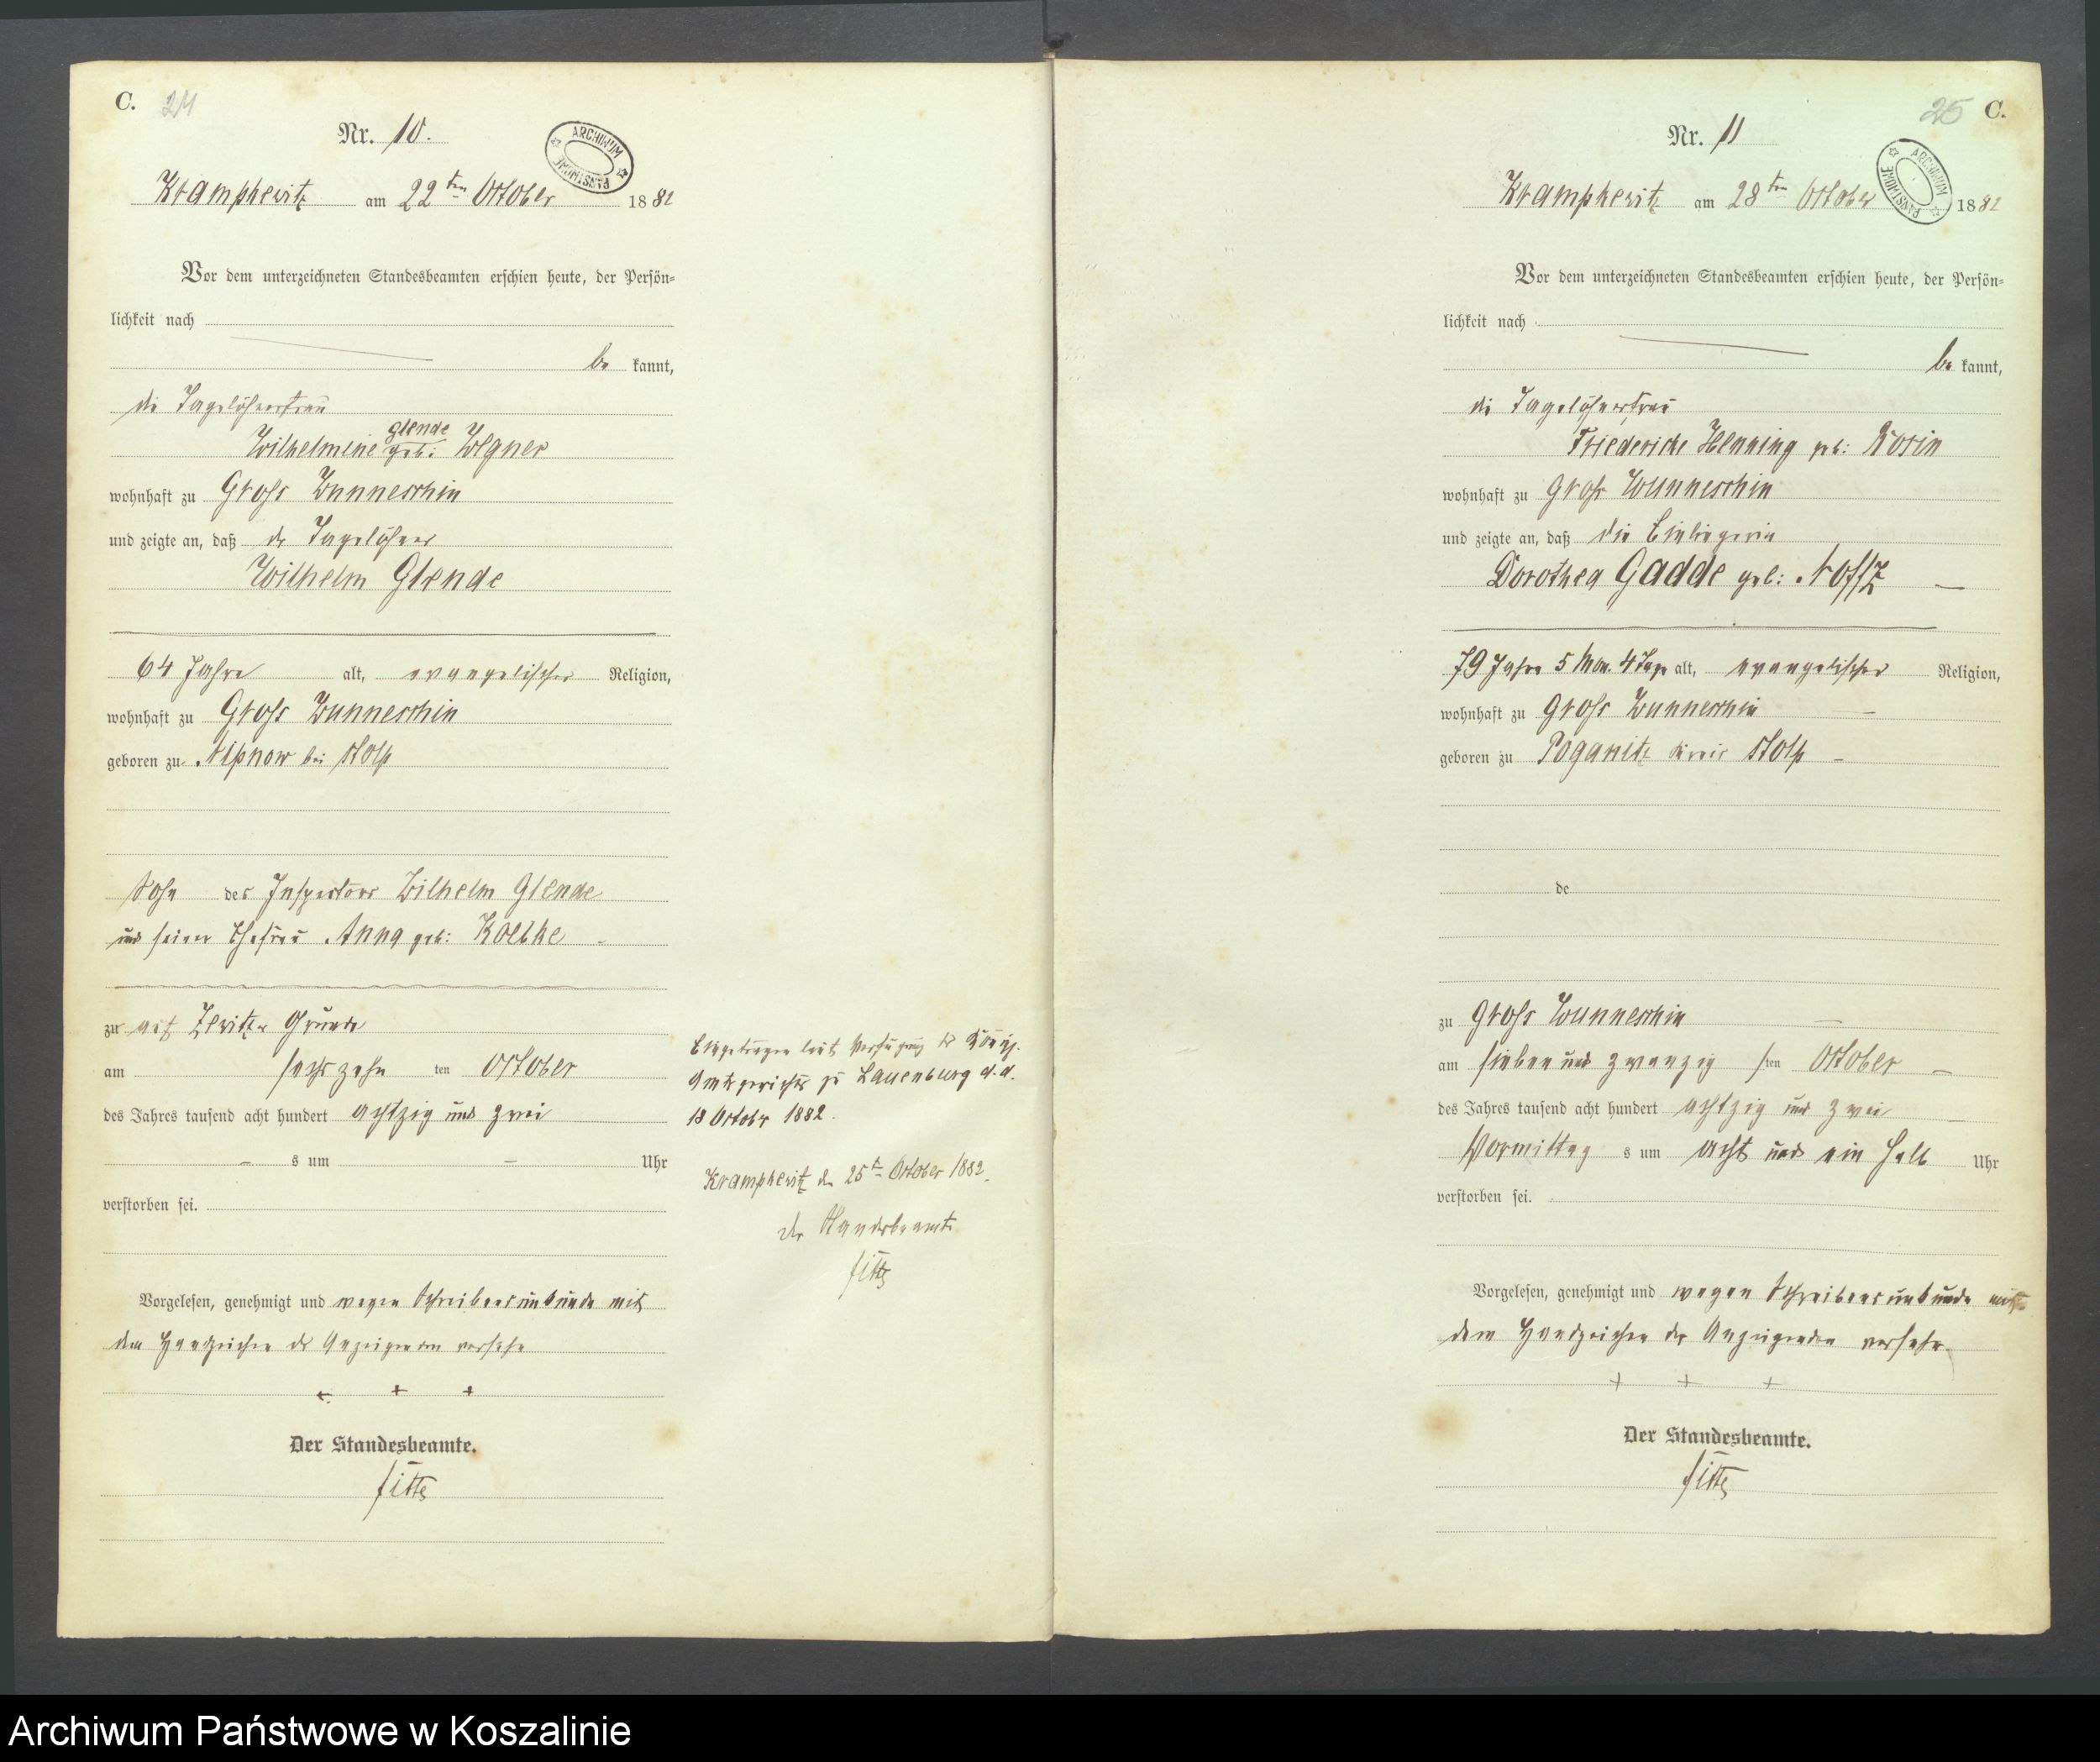 C. 24
Nr. 10.
ARCHIWUM PAŃSTWOWE
Kramphewitz am 22ten October 1882
Vor dem unterzeichneten Standesbeamten erschien heute, der Persön-
lichkeit nach
be kannt,
die Tagelöhnerfrau
glende
Wilhelmine geb: Wegner
wohnhaft zu Gross Wunneschin
und zeigte an, daß der Tagelöhner
Wilhelm Glende
64 Jahre alt, evangelischer Religion,
wohnhaft zu Gross Wunneschin
geboren zu Nipnow bei Stolp
Sohn des Inspectors Wilhelm Glende
und seiner Ehefrau Anna geb:
zu auf Zewitzer Grunde
am sechszehn ten October
des Jahres tausend acht hundert achtzig und zwei
– s um – Uhr
verstorben sei.
Vorgelesen, genehmigt und wegen Schreibensunkunde mit
dem Handzeichen der versehen
+ + +
Der Standesbeamte.
Eingetragen laut Verfügung des Königl.
Amtsgerichts zu Lauenburg d. d.
18 October 1882.
Kramphewitz den 25ten October 1882.
der Standesbeamte
25 C.
Nr. 11
ARCHIWUM PAŃSTWOWE
Kramphewitz am 28ten October 1882
Vor dem unterzeichneten Standesbeamten erschien heute, der Persön-
lichkeit nach
be kannt,
die Tagelöhnerfrau
Friedericke Henning geb: Kosin
wohnhaft zu Gross Wunneschin
und zeigte an, daß die Einliegerin
Dorothea Gadde geb: Noffz
79 Jahre 5 Mon. 4 Tage alt, evangelischer Religion,
wohnhaft zu Gross Wunneschin
geboren zu Poganitz Kreis Stolp
de
zu Gross Wunneschin
am sieben und zwanzig sten October
des Jahres tausend acht hundert achtzig und zwei
Vormittag s um acht und ein halb Uhr
verstorben sei.
Vorgelesen, genehmigt und wegen Schreibensunkunde mit
dem Handzeichen der Anzeigenden versehen
+ + +
Der Standesbeamte.
Archiwum Państwowe w Koszalinie